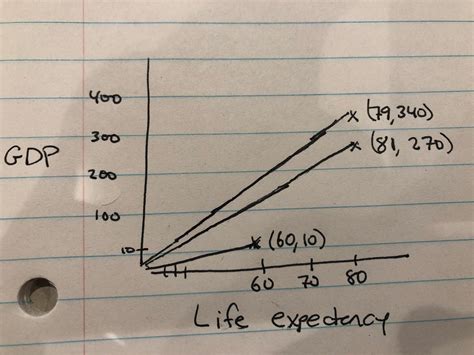 400
300
GDP
200
100
10
(79,340)
(81, 270)
(60,10)
60 70 80
Life expectency